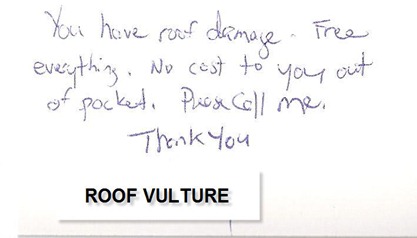 You have roof damage. Free
everything. No cost to you out
of pocket. Please Call me.
Thank You
ROOF VULTURE